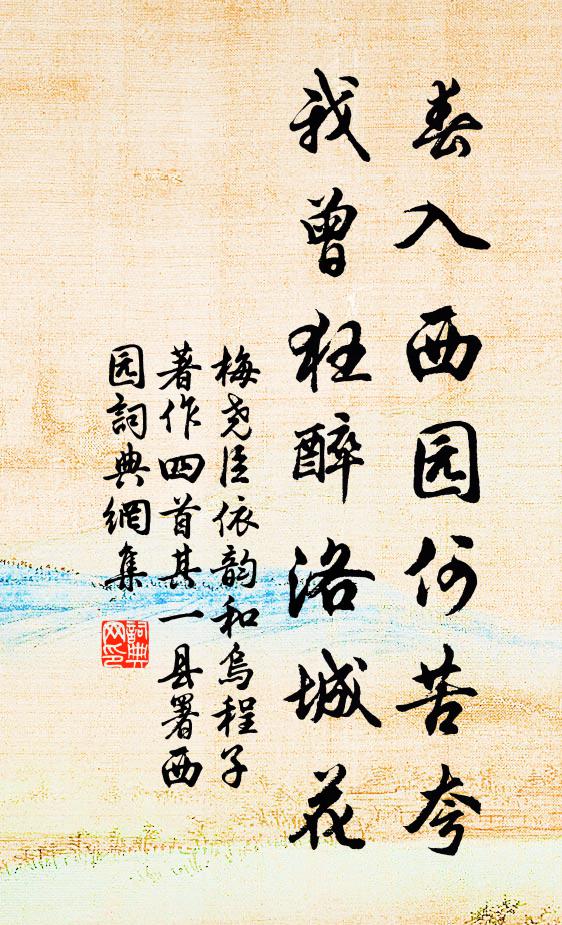 春入西园何苦夸
我曾狂醉洛城花
梅尧臣依韵和乌程子
著作四首其一县署西
园詞典網集
詞典
网印